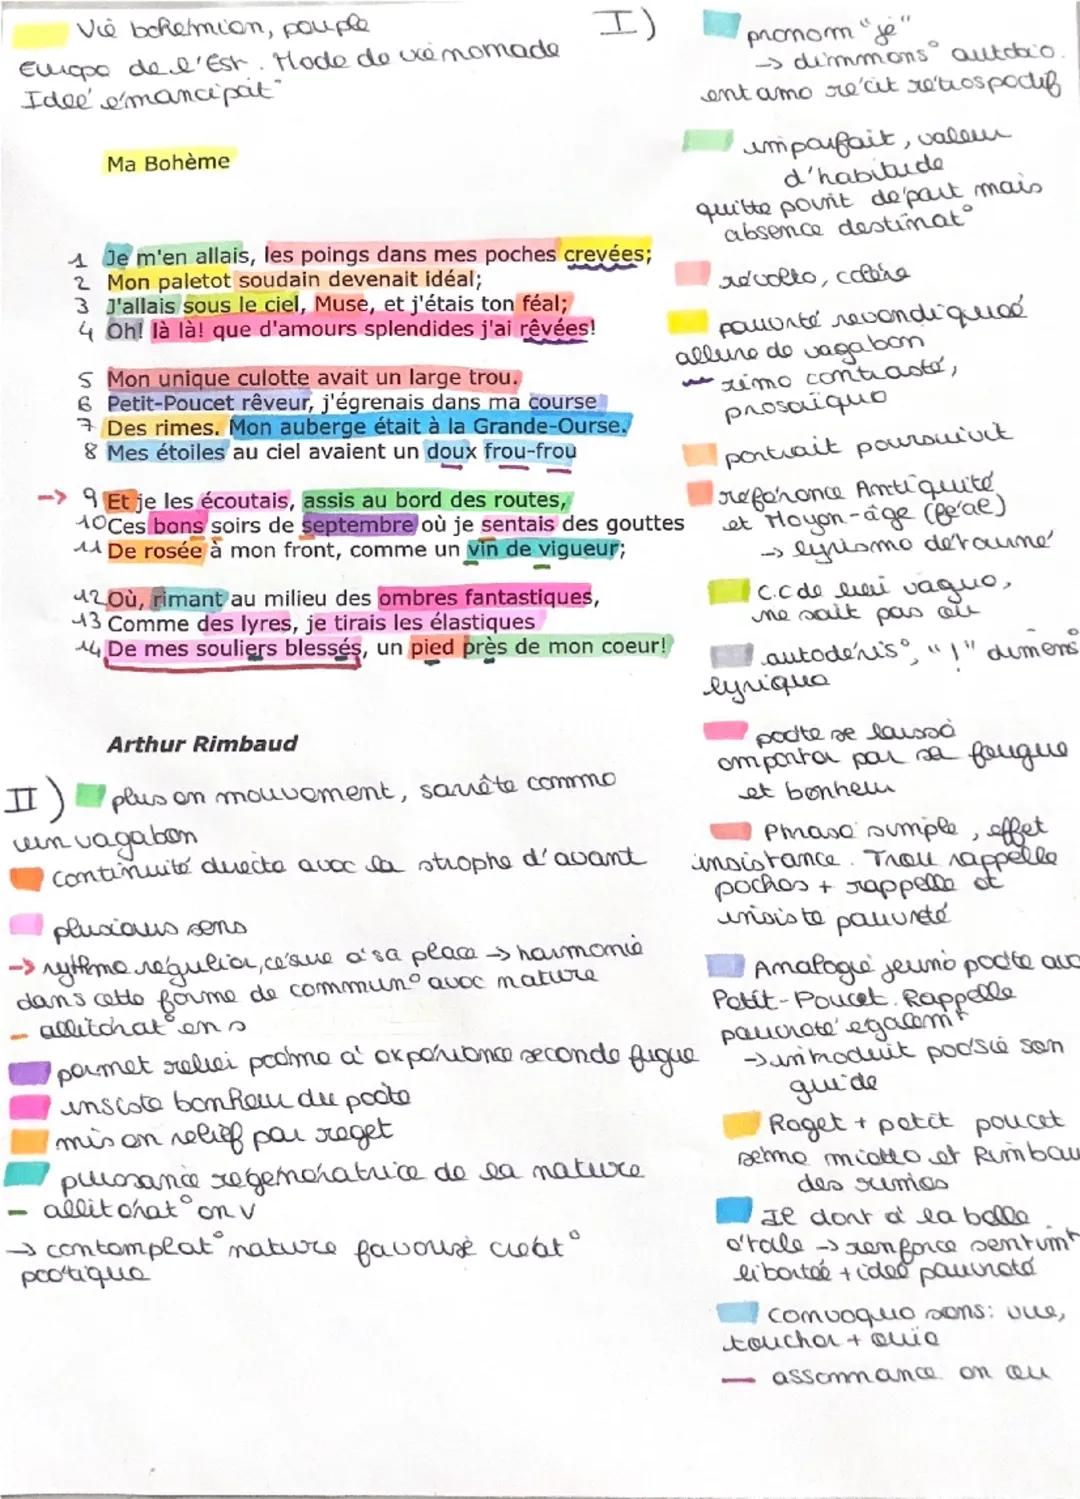 Vie bohémien, peuple
Europe de l'Est. Mode de vie nomade
Idée émancipat°
Ma Bohème
1 Je m'en allais, les poings dans mes poches crevées;
2 Mon paletot soudain devenait idéal;
3 J'allais sous le ciel, Muse, et j'étais ton féal;
4 Oh! là là! que d'amours splendides j'ai rêvées!
5 Mon unique culotte avait un large trou.
6 Petit-Poucet rêveur, j'égrenais dans ma course
7 Des rimes. Mon auberge était à la Grande-Ourse.
8 Mes étoiles au ciel avaient un doux frou-frou
-> 9 Et je les écoutais, assis au bord des routes,
10 Ces bons soirs de septembre où je sentais des gouttes
11 De rosée à mon front, comme un vin de vigueur;
12 Où, rimant au milieu des ombres fantastiques,
13 Comme des lyres, je tirais les élastiques
14 De mes souliers blessés, un pied près de mon coeur!
Arthur Rimbaud
I)
pronom "je"
-> dimmens° autobio.
entame récit rétrospectif
imparfait, valeur
d'habitude
quitte point départ mais
absence destinat°
révolte, colère
pauvreté revendiquée
allure de vagabon
rime contraste,
prosaïque
portrait poursuivit
référence Antiquité
et Moyen-âge (féal)
-> lyrisme détourné
C.C de lieu vague,
ne sait pas où
autodéris°, "!" dimens°
lyrique
poète se laisse
emporter par sa fougue
et bonheur
Phrase simple, effet
insistance. Trou rappelle
poches + rappelle et
insiste pauvreté
Analogie jeune poète avec
Petit-Poucet. Rappelle
pauvreté égalemt
-> introduit poésie son
guide
Rejet + petit poucet
sème miette et Rimbau
des rimes
Il dort à la belle
étoile -> renforce sentimt
liberté + idée pauvreté
Convoque sens: vue,
toucher + ouïe
assonnance en ou
II) plus en mouvement, s'arrête comme
un vagabon
continuité directe avec la strophe d'avant
plusieurs sens
-> rythme régulier, césure à sa place -> harmonie
dans cette forme de commun° avec nature
- allitérat° en s
permet relier poème à expérience seconde fugue
insiste bonheur du poète
mis en relief par rejet
puissance régénératrice de la nature
- allitérat° en v
-> contemplat° nature favorise créat°
poétique